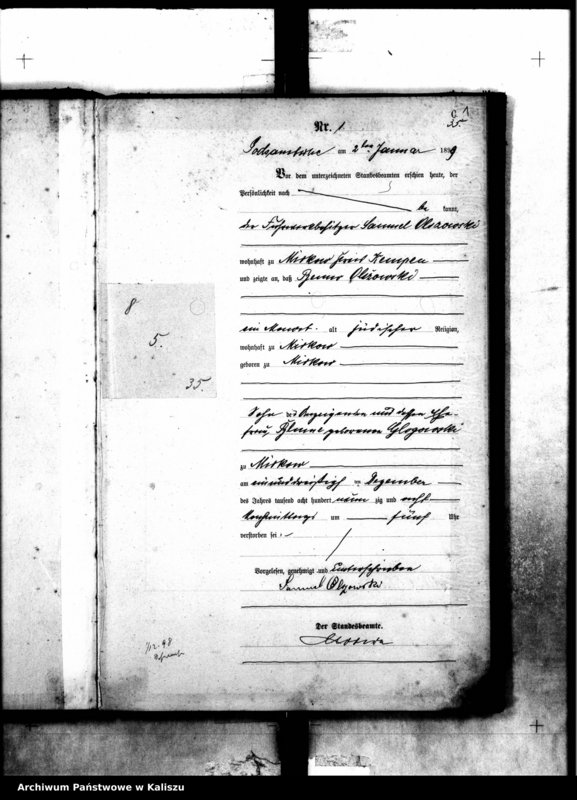 Nr. 1
am 2ten Januar 1899
Vor dem unterzeichneten Standesbeamten erschien heute, der
Persönlichkeit nach
be kannt,
der Fuhrwerksbesitzer Samuel Olszowski
wohnhaft zu Mirkow Kreis Kempen
und zeigte an, daß Benno Olszowski
8
5.
35.
ein Monat alt jüdischer Religion,
wohnhaft zu Mirkow
geboren zu Mirkow
Sohn des Anzeigenden und dessen Ehe-
frau geborenen Glogowski
zu Mirkow
am einunddreißigsten Dezember
des Jahres tausend acht hundert neun zig und acht
Nachmittags um fünf Uhr
verstorben sei.
Vorgelesen, genehmigt und unterschrieben
Samuel Olszowski
Der Standesbeamte.
Nr. 98
Archiwum Państwowe w Kaliszu